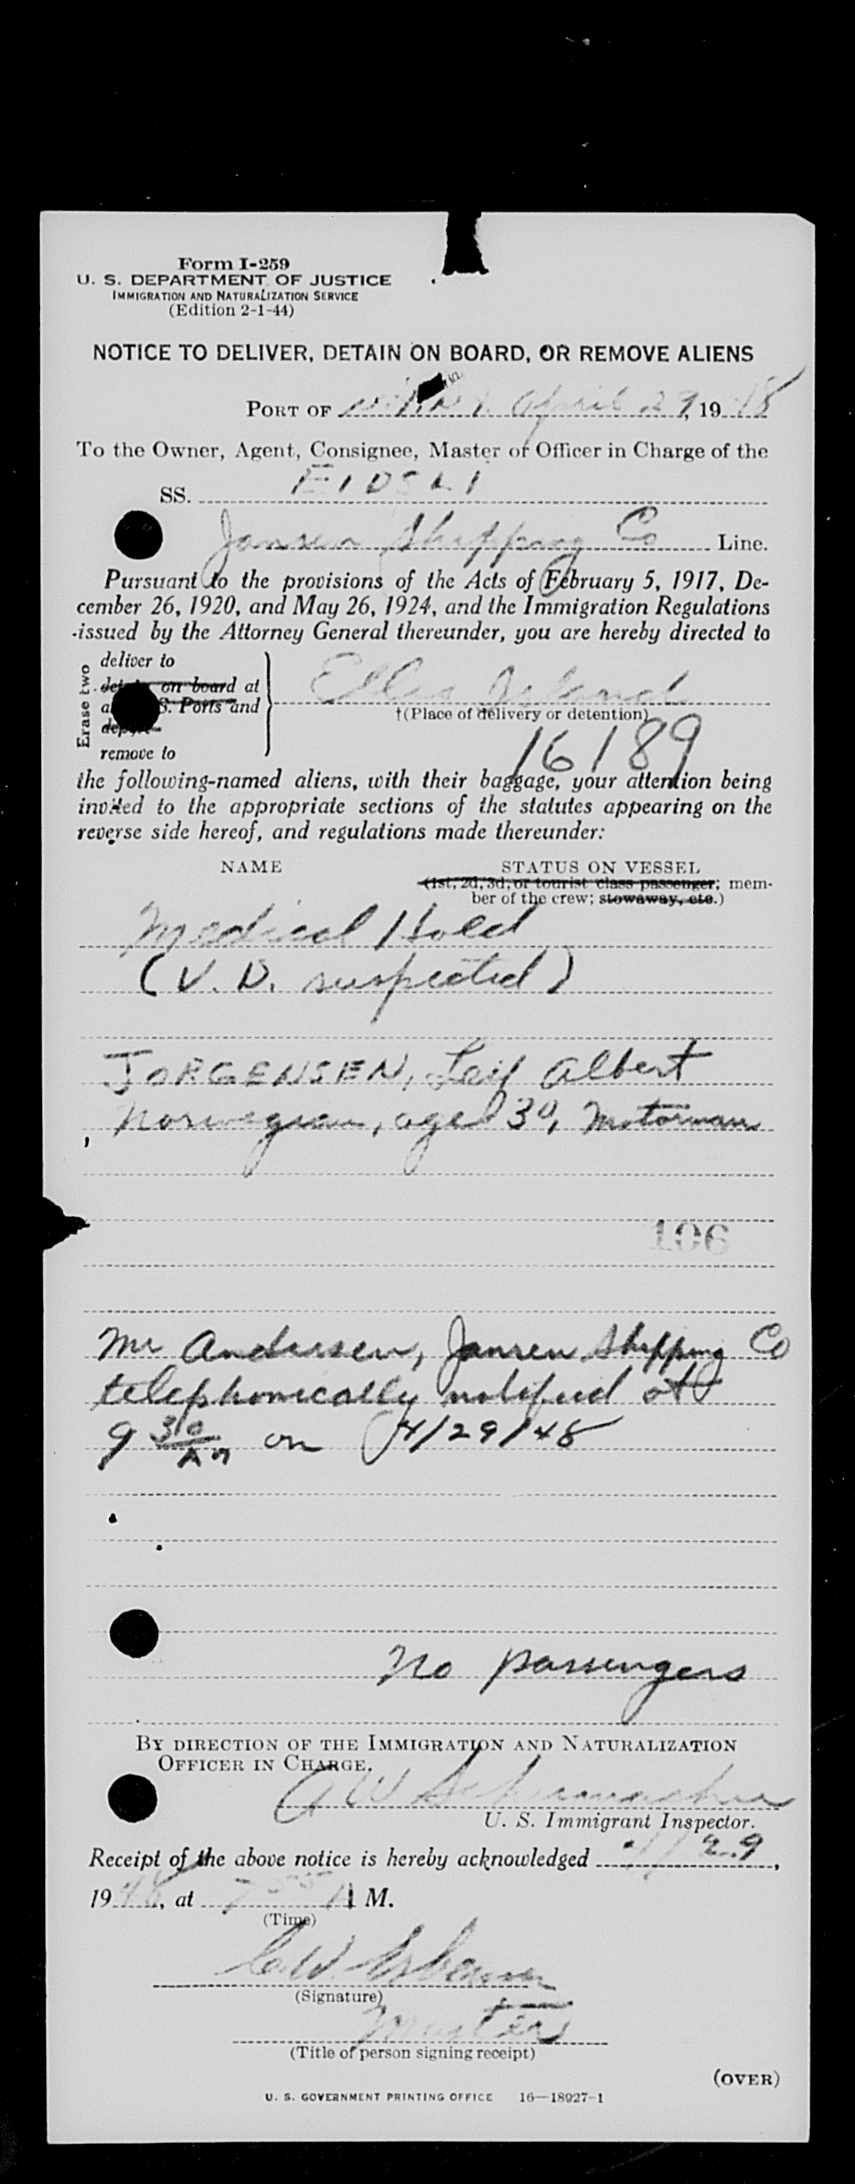 Form I-259
U. S. DEPARTMENT OF JUSTICE
IMMIGRATION AND NATURALIZATION SERVICE
(Edition 2-1-44)
NOTICE TO DELIVER, DETAIN ON BOARD, OR REMOVE ALIENS
PORT OF N.Y. April 29, 19 48
To the Owner, Agent, Consignee, Master or Officer in Charge of the
SS. EIDSLI
Jansen Shipping Co Line.
Pursuant to the provisions of the Acts of February 5, 1917, De-
cember 26, 1920, and May 26, 1924, and the Immigration Regulations
issued by the Attorney General thereunder, you are hereby directed to
Erase two
deliver to
on board at
S. Ports and
remove to
Ellis Island
†(Place of delivery or detention)
16189
the following-named aliens, with their baggage, your attention being
invited to the appropriate sections of the statutes appearing on the
reverse side hereof, and regulations made thereunder:
NAME STATUS ON VESSEL
(1st, 2d, 3d, or tourist class passenger; mem-
ber of the crew; stowaway, etc.)
Medical Hold
(V. D. suspected)
JORGENSEN, Leif Albert
Norwegian, aged 30, Motorman
106
Mr Andersen, Jansen Shipping Co
telephonically notified at
9 30 AM on 4/29/48
No passengers
BY DIRECTION OF THE IMMIGRATION AND NATURALIZATION
OFFICER IN CHARGE.
U. S. Immigrant Inspector.
Receipt of the above notice is hereby acknowledged 4/29,
19 48, at 7 55 A M.
(Time)
(Signature)
Master
(Title of person signing receipt)
(OVER)
U. S. GOVERNMENT PRINTING OFFICE 16—18927-1